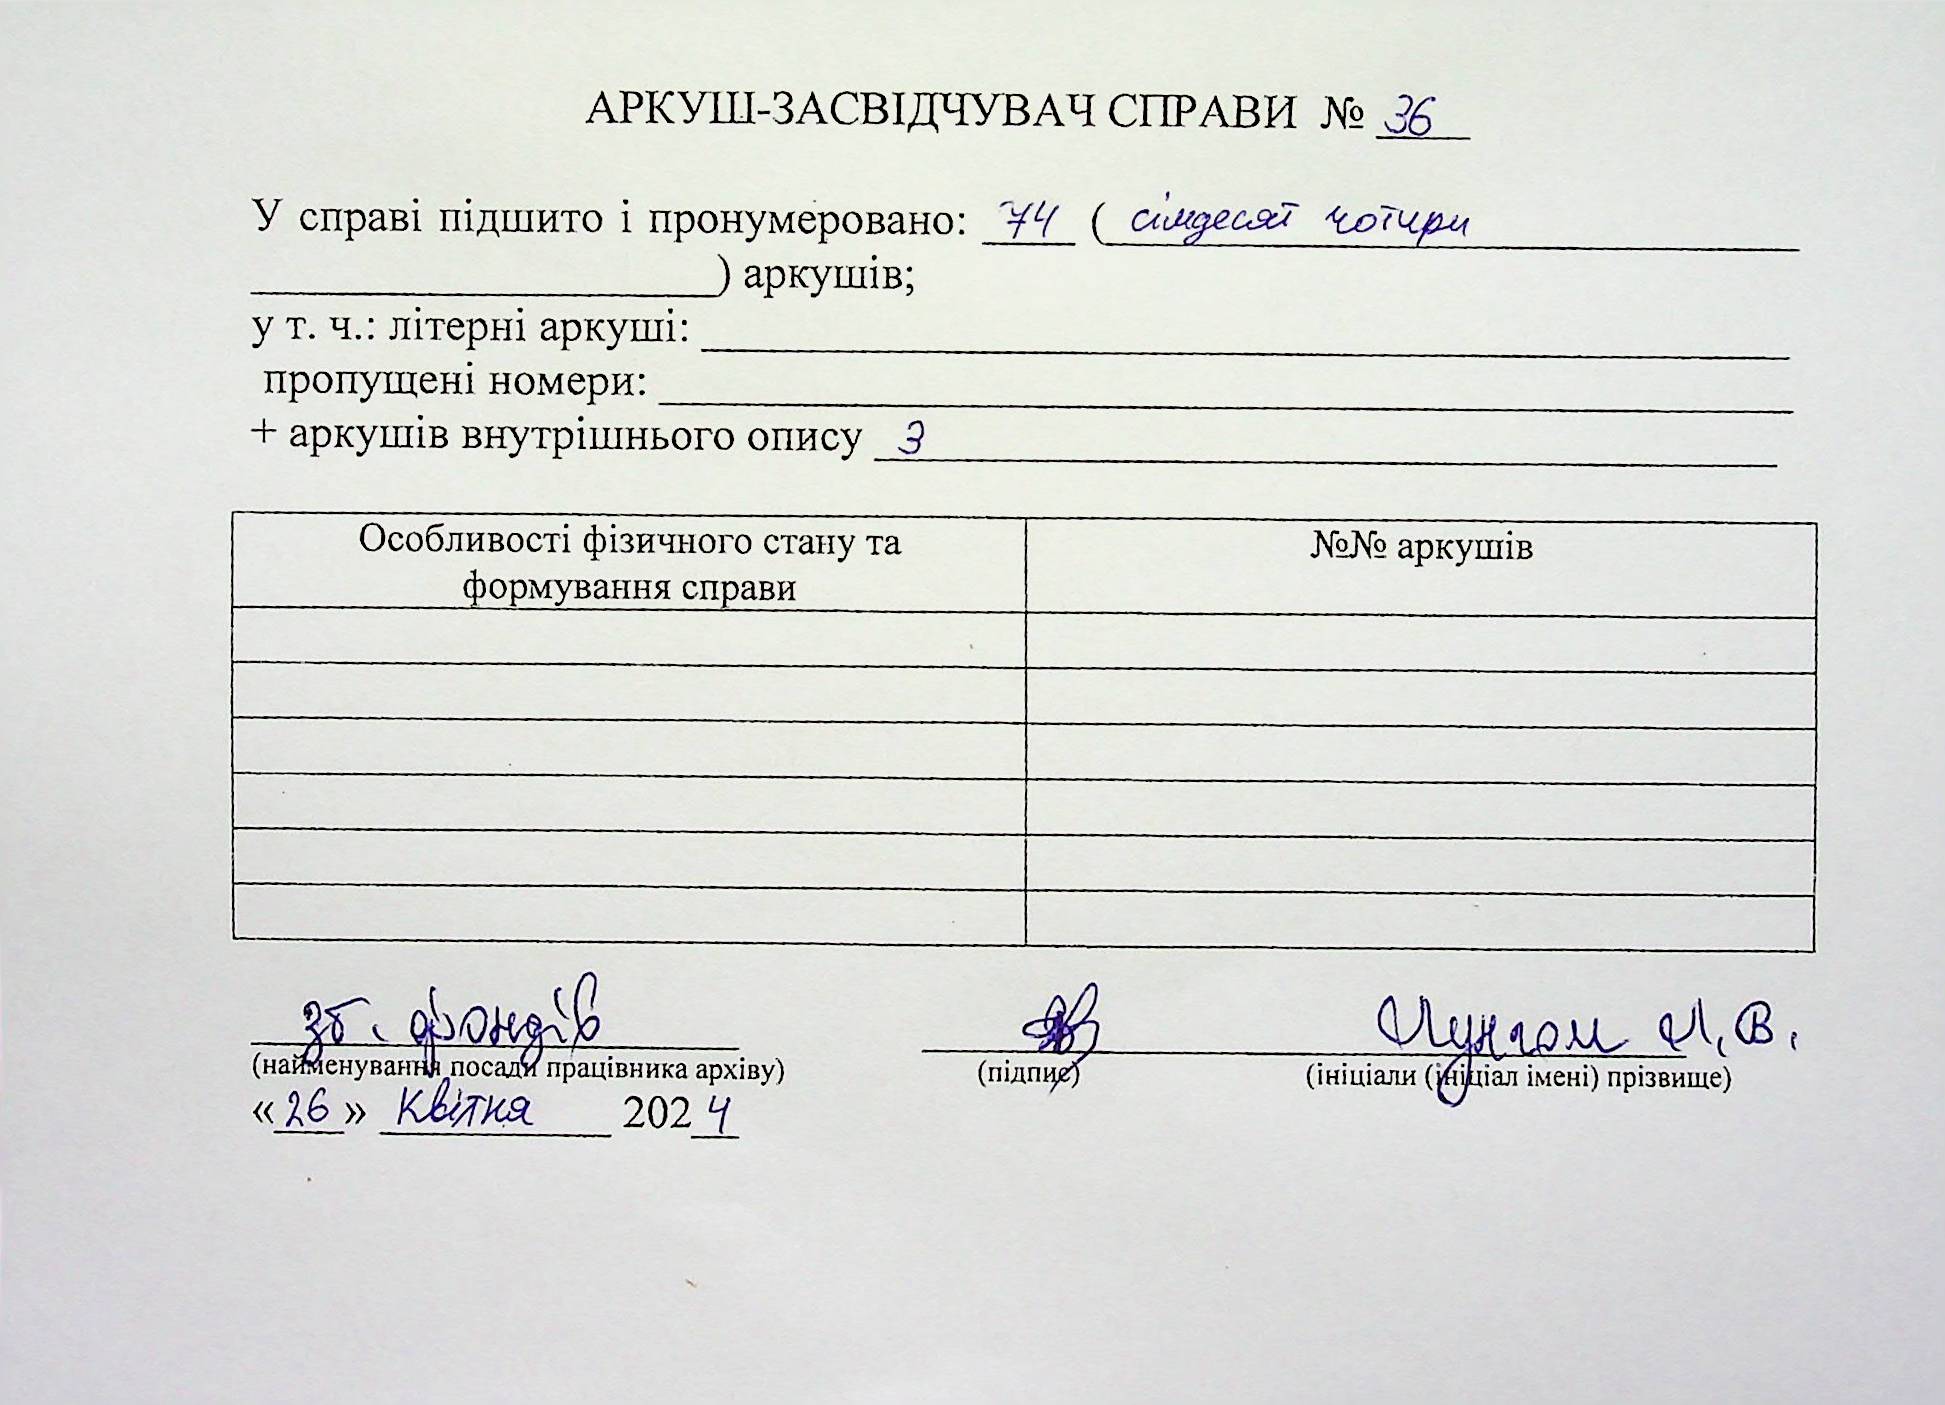 АРКУШ-ЗАСВІДЧУВАЧ СПРАВИ № 36
У справі підшито і пронумеровано: 74 ( сімдесят чотири
) аркушів;
у т. ч.: літерні аркуші:
пропущені номери:
+ аркушів внутрішнього опису 3
Особливості фізичного стану та
формування справи
№№ аркушів
зб. фондів
(найменування посади працівника архіву)
(підпис)
Л. В.
(ініціали (ініціал імені) прізвище)
«26» квітня 2024